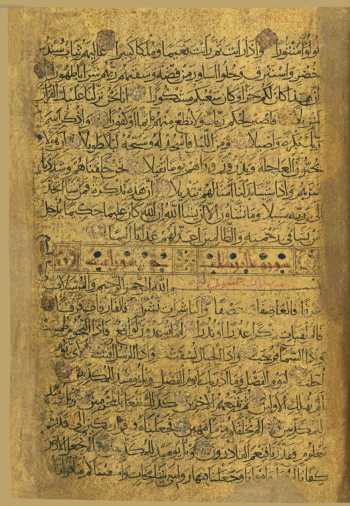 لؤلؤا منثورا واذا رايت ثم رايت نعيما وملكا كبيرا عاليهم ثياب سندس
خضر واستبرق وحلوا اساور من فضة وسقيهم ربهم شرابا طهورا
ان هذا كان لكم جزاء وكان سعيكم مشكورا انا نحن نزلنا عليك القران
تنزيلا فاصبر لحكم ربك ولا تطع منهم اثما او كفورا واذكر اسم
ربك بكرة واصيلا ومن الليل فاسجد له وسبحه ليلا طويلا ان هؤلاء
يحبون العاجلة ويذرون وراءهم يوما ثقيلا نحن خلقناهم وشددنا
اسرهم واذا شئنا بدلنا امثالهم تبديلا ان هذه تذكرة فمن شاء اتخذ
الى ربه سبيلا وما تشاؤن الا ان يشاء الله ان الله كان عليما حكيما يدخل
من يشاء في رحمته والظالمين اعد لهم عذابا اليما
سورة المرسلات
بسم الله الرحمن الرحيم والمرسلات
عرفا فالعاصفات عصفا والناشرات نشرا فالفارقات فرقا
فالملقيات ذكرا عذرا او نذرا انما توعدون لواقع فاذا النجوم طمست
واذا السماء فرجت واذا الجبال نسفت واذا الرسل اقتت لاي يوم
اجلت ليوم الفصل وما ادريك ما يوم الفصل ويل يومئذ للمكذبين
الم نهلك الاولين ثم نتبعهم الاخرين كذلك نفعل بالمجرمين ويل يومئذ
للمكذبين الم نخلقكم من ماء مهين فجعلناه في قرار مكين الى قدر
معلوم فقدرنا فنعم القادرون ويل يومئذ للمكذبين الم نجعل الارض
كفاتا احياء وامواتا وجعلنا فيها رواسي شامخات واسقيناكم ماء فراتا